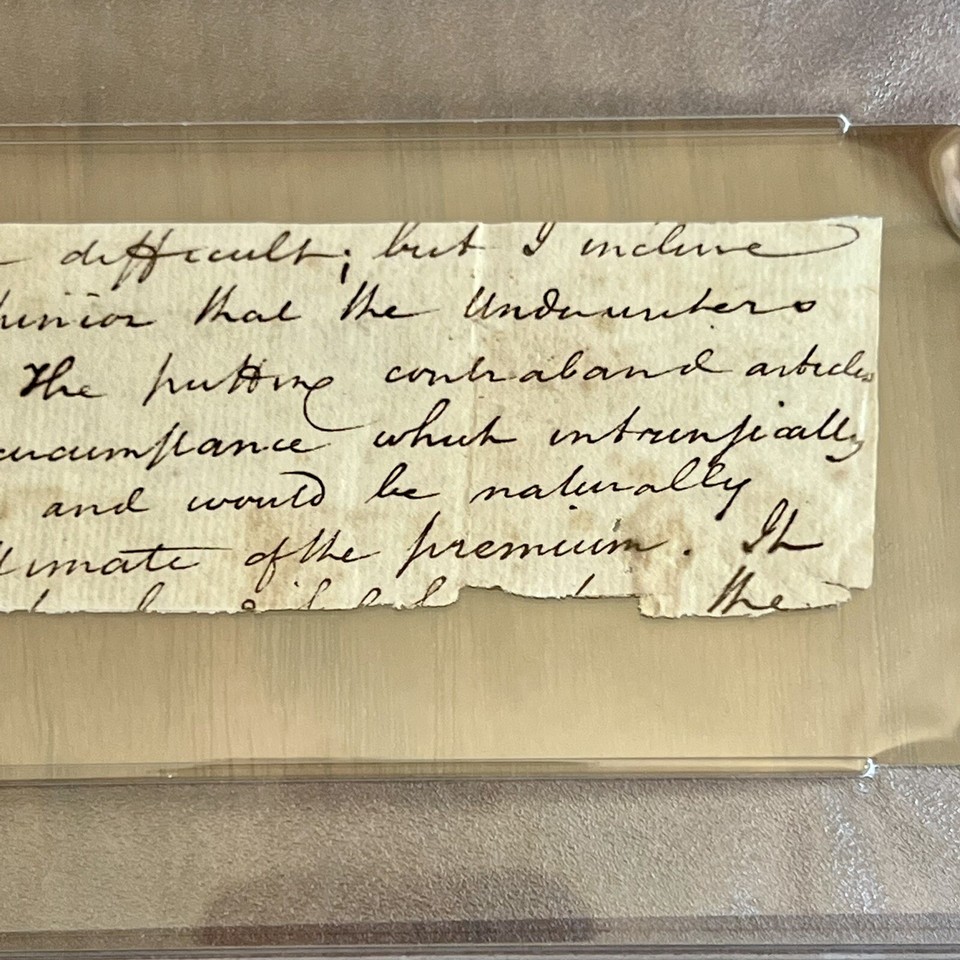 difficult; but I incline
pinion that the Underwriters
The putting contraband articles
circumstance which intrinsically
and would be naturally
timate of the premium. It
the